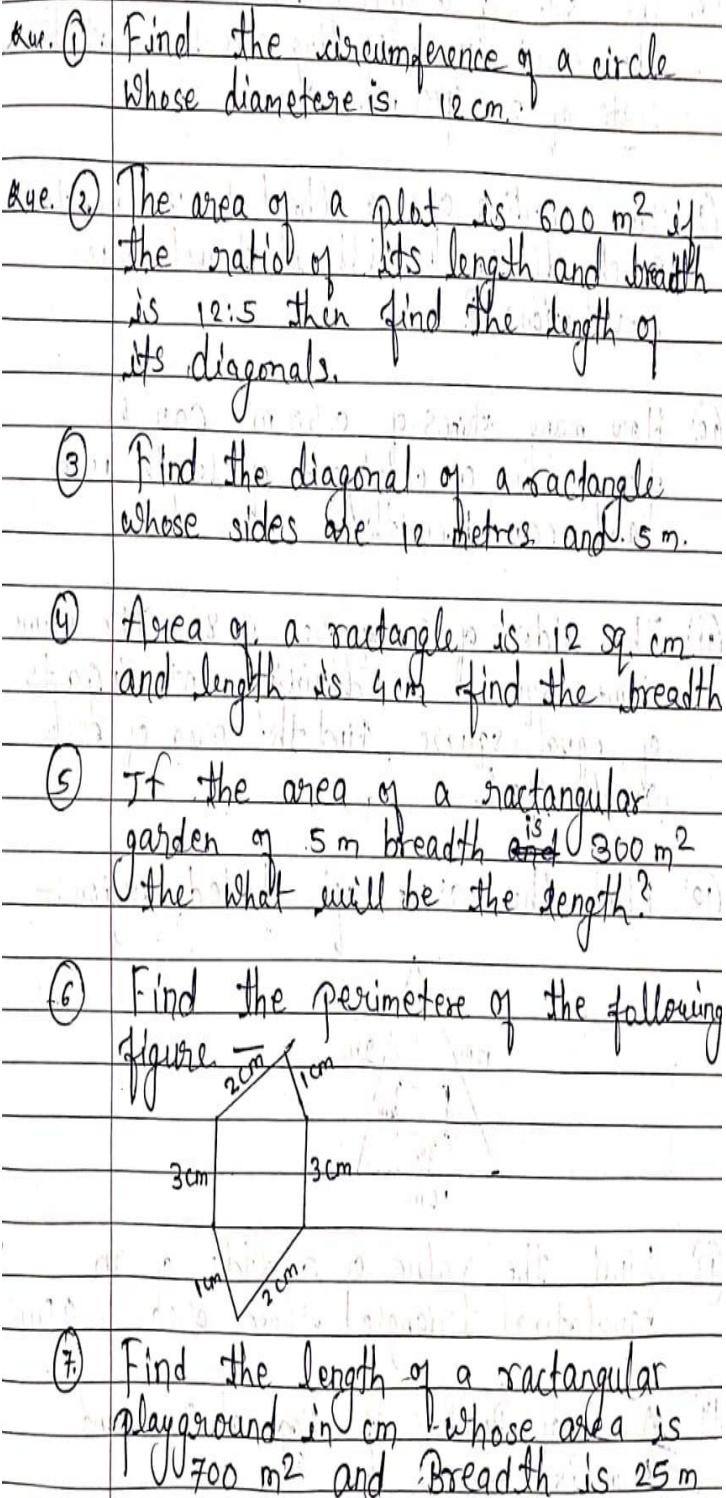 Que. ① Find the circumference of a circle
whose diametere is 12 cm.
Que. ② The area of a plot is 600 m² if
the ratio of its length and breadth
is 12:5 then find the length of
its diagonals.
③ Find the diagonal of a ractangle
whose sides are 12 metres and 5 m.
④ Area of a ractangle is 12 sq cm
and length is 4 cm find the breadth
⑤ If the area of a ractangular
garden of 5 m breadth is 300 m²
the what will be the length?
⑥ Find the perimetere of the following
figure —
2cm 1cm
3cm 3cm
1cm 2cm.
⑦ Find the length of a ractangular
playground in cm whose area is
700 m² and Breadth is 25 m